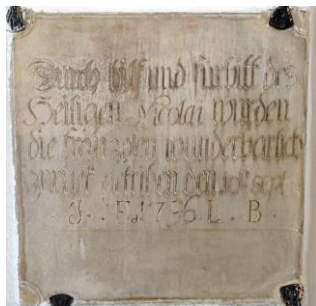 Durch hilf und fürbitt des
Heiligen Nicolai wurden
die franzosen wunderbarlich
zurück getriben den 10t sept
J. F. 1796 L. B.